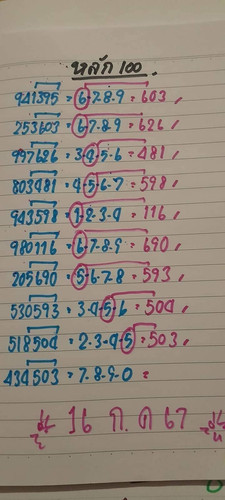 หลัก 100
941395 = 6-7-8-9 = 603
253603 = 6-7-8-9 = 626
997626 = 3-4-5-6 = 481
803481 = 4-5-6-7 = 598
943598 = 1-2-3-4 = 116
980116 = 6-7-8-9 = 690
205690 = 5-6-7-8 = 593
530593 = 3-4-5-6 = 504
518504 = 2-3-4-5 = 503
434503 = 7-8-9-0 =
16 ก.ค 67